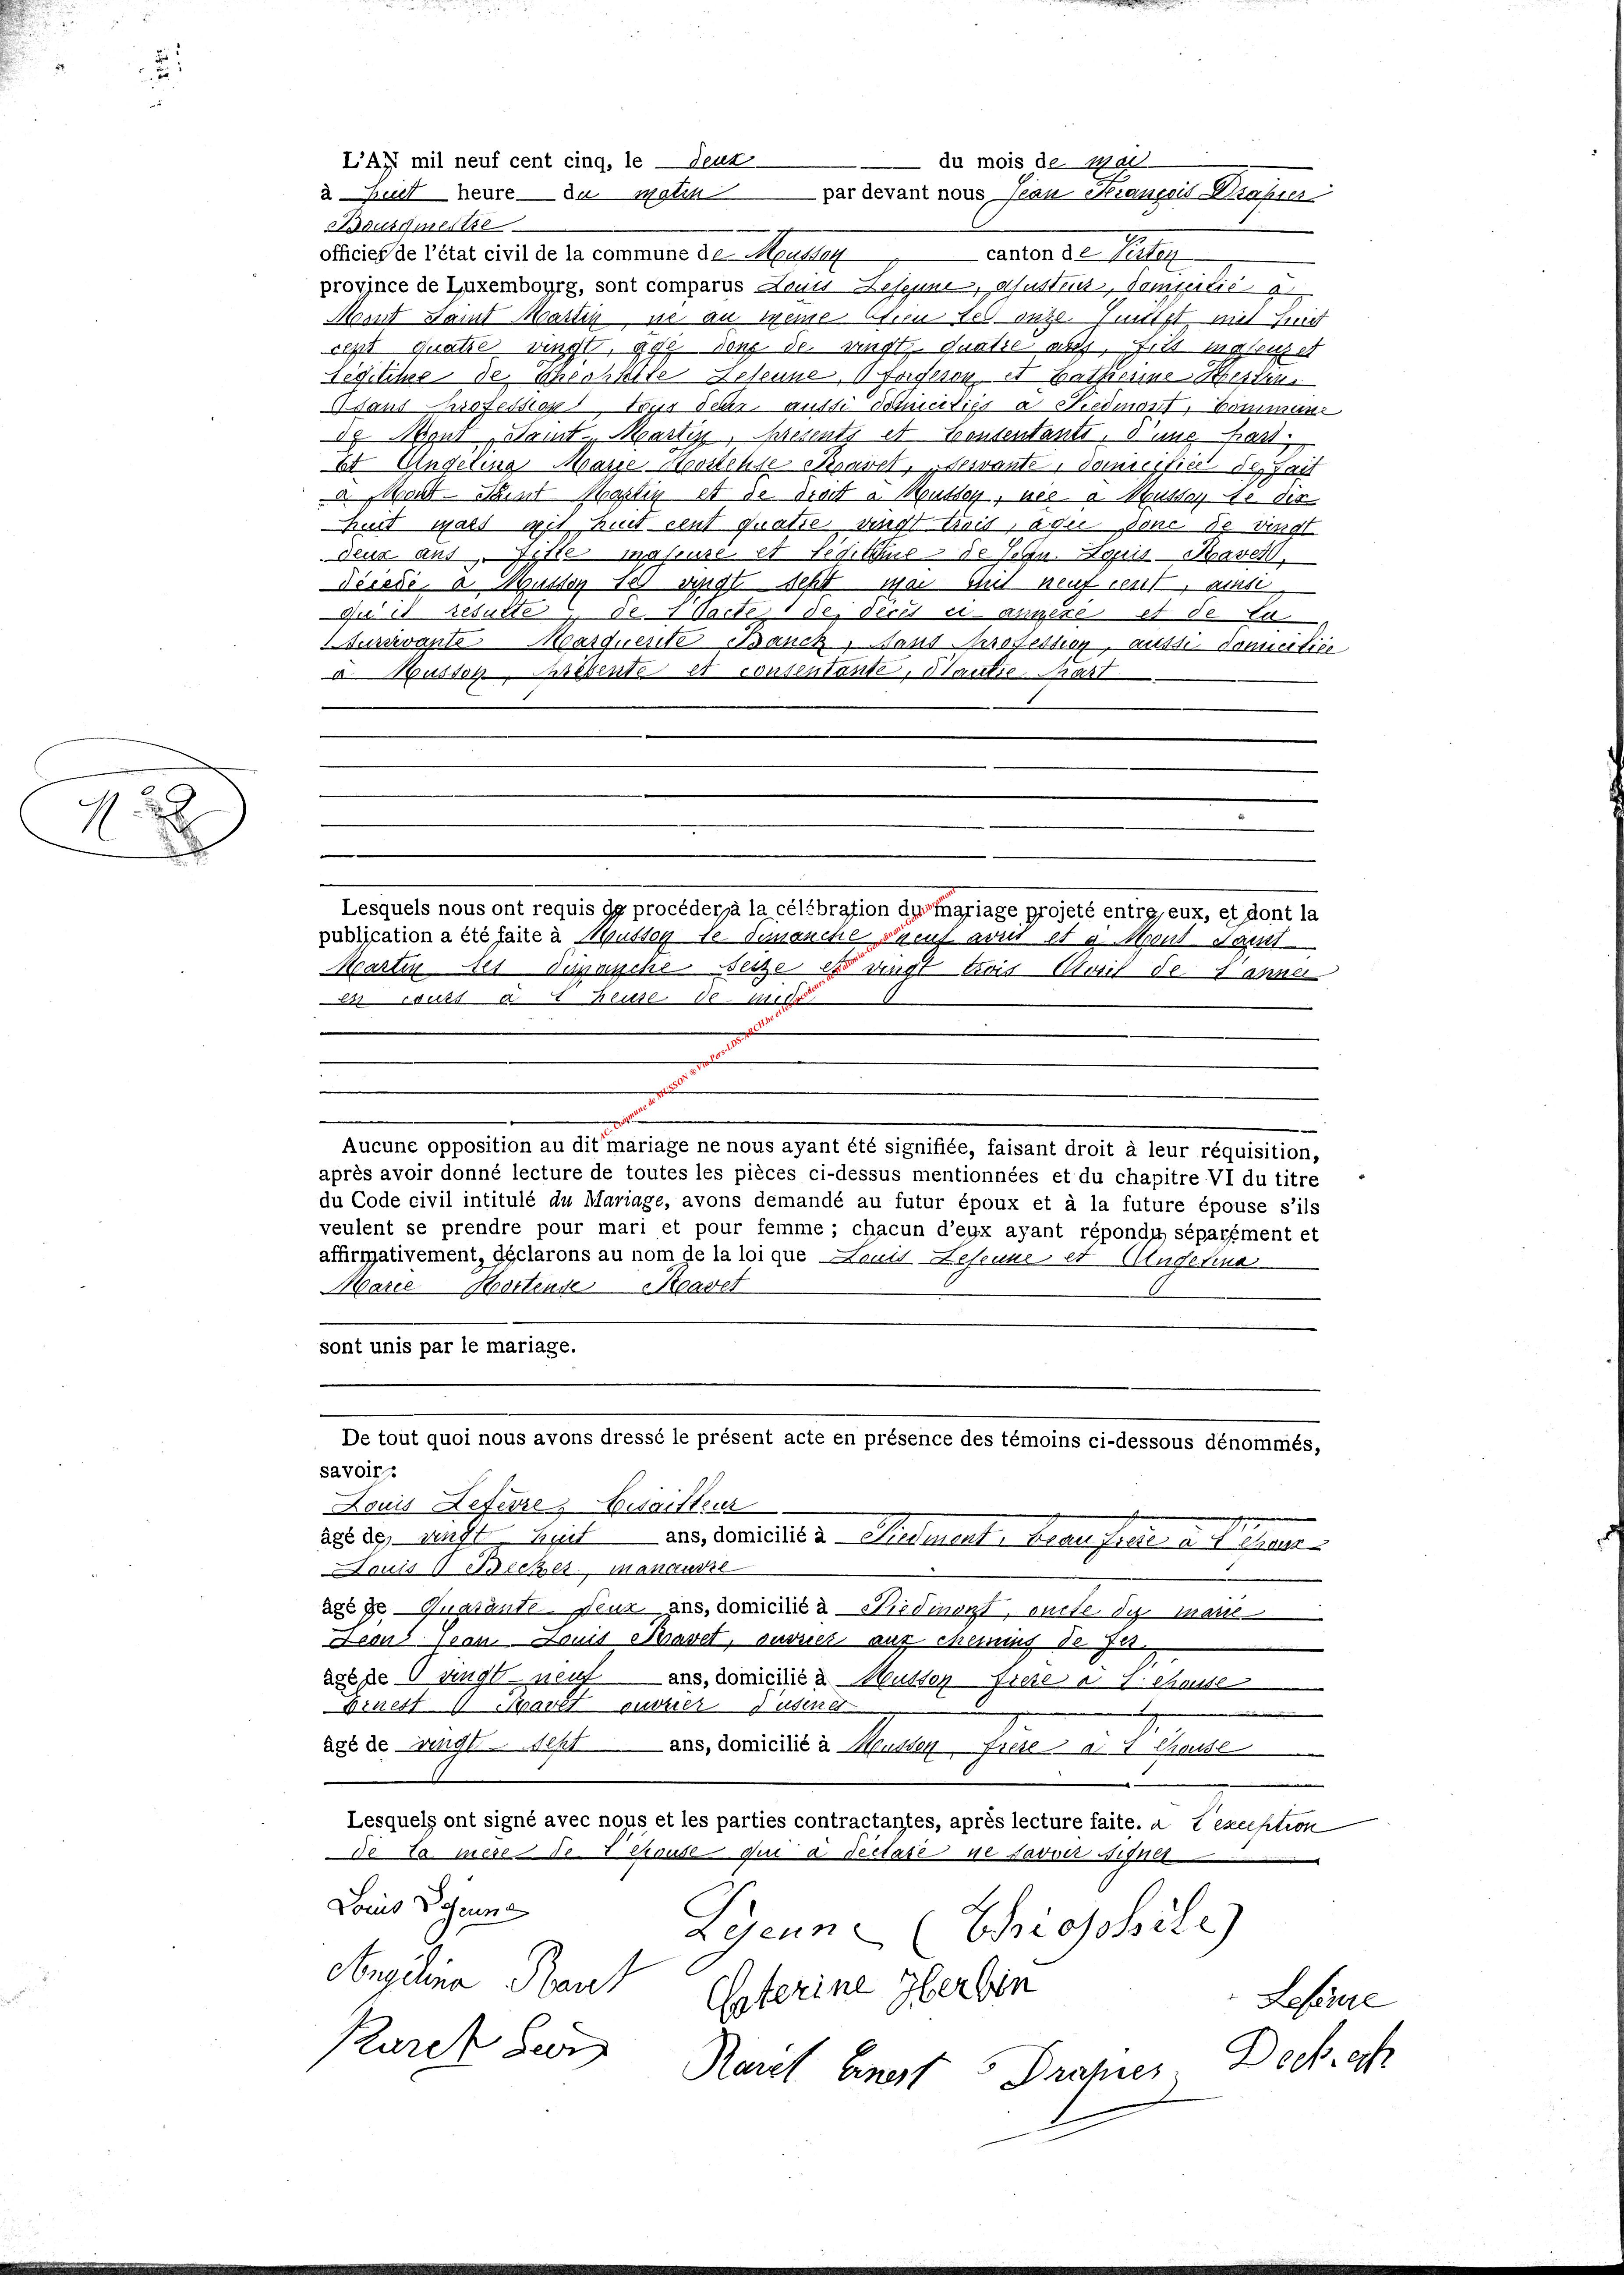 L'AN mil neuf cent cinq, le deux du mois de mai
à huit heure du matin par devant nous Jean François Drapier
Bourgmestre
officier de l'état civil de la commune de Musson canton de Virton
province de Luxembourg, sont comparus Louis Lejeune, ajusteur, domicilié à
Mont Saint Martin, né au même lieu le onze Juillet mil huit
cent quatre vingt, âgé donc de vingt quatre ans, fils majeur et
légitime de Théophile Lejeune, forgeron et Catherine Herbin,
sans profession, tous deux aussi domiciliés à Piedmont, commune
de Mont Saint Martin, présents et consentants, d'une part.
Et Angelina Marie Hortense Ravet, servante, domiciliée de fait
à Mont-Saint Martin et de droit à Musson, née à Musson le dix
huit mars mil huit cent quatre vingt trois, agée donc de vingt
deux ans, fille majeure et légitime de Jean Louis Ravet,
décédé à Musson le vingt sept mai mil neuf cent, ainsi
qu'il résulte de l'acte de décès ci annexé et de la
survivante Marguerite Banck, sans profession, aussi domiciliée
à Musson, présente et consentante, d'autre part
N° 22
Lesquels nous ont requis de procéder à la célébration du mariage projeté entre eux, et dont la
publication a été faite à Musson le dimanche neuf avril et à Mont Saint
Martin les dimanche seize et vingt trois Avril de l'année
en cours à l'heure de midi
AC- Commune de MUSSON ® Via Pers-LDS-ARCH.be et les Encodeurs de Wallonia-Gendinant-GenLibramont
Aucune opposition au dit mariage ne nous ayant été signifiée, faisant droit à leur réquisition,
après avoir donné lecture de toutes les pièces ci-dessus mentionnées et du chapitre VI du titre
du Code civil intitulé du Mariage, avons demandé au futur époux et à la future épouse s'ils
veulent se prendre pour mari et pour femme ; chacun d'eux ayant répondu séparément et
affirmativement, déclarons au nom de la loi que Louis Lejeune et Angelina
Marie Hortense Ravet
sont unis par le mariage.
De tout quoi nous avons dressé le présent acte en présence des témoins ci-dessous dénommés,
savoir :
Louis Lefèvre, Cisailleur
âgé de vingt huit ans, domicilié à Piedmont, beau frère à l'époux
Louis Becker, manœuvre
âgé de Quarante deux ans, domicilié à Piedmont, oncle du marié
Léon Jean Louis Ravet, ouvrier aux chemins de fer
âgé de vingt neuf ans, domicilié à Musson frère à l'épouse
Ernest Ravet ouvrier d'usines
âgé de vingt sept ans, domicilié à Musson, frère à l'épouse
Lesquels ont signé avec nous et les parties contractantes, après lecture faite. à l'exception
de la mère de l'épouse qui a déclaré ne savoir signer
Louis Lejeune
Lejeune (Thiophile)
Angélina Ravet
Caterine Herbin
Lefèvre
Ravet Louis
Ravet Ernest
Drapier